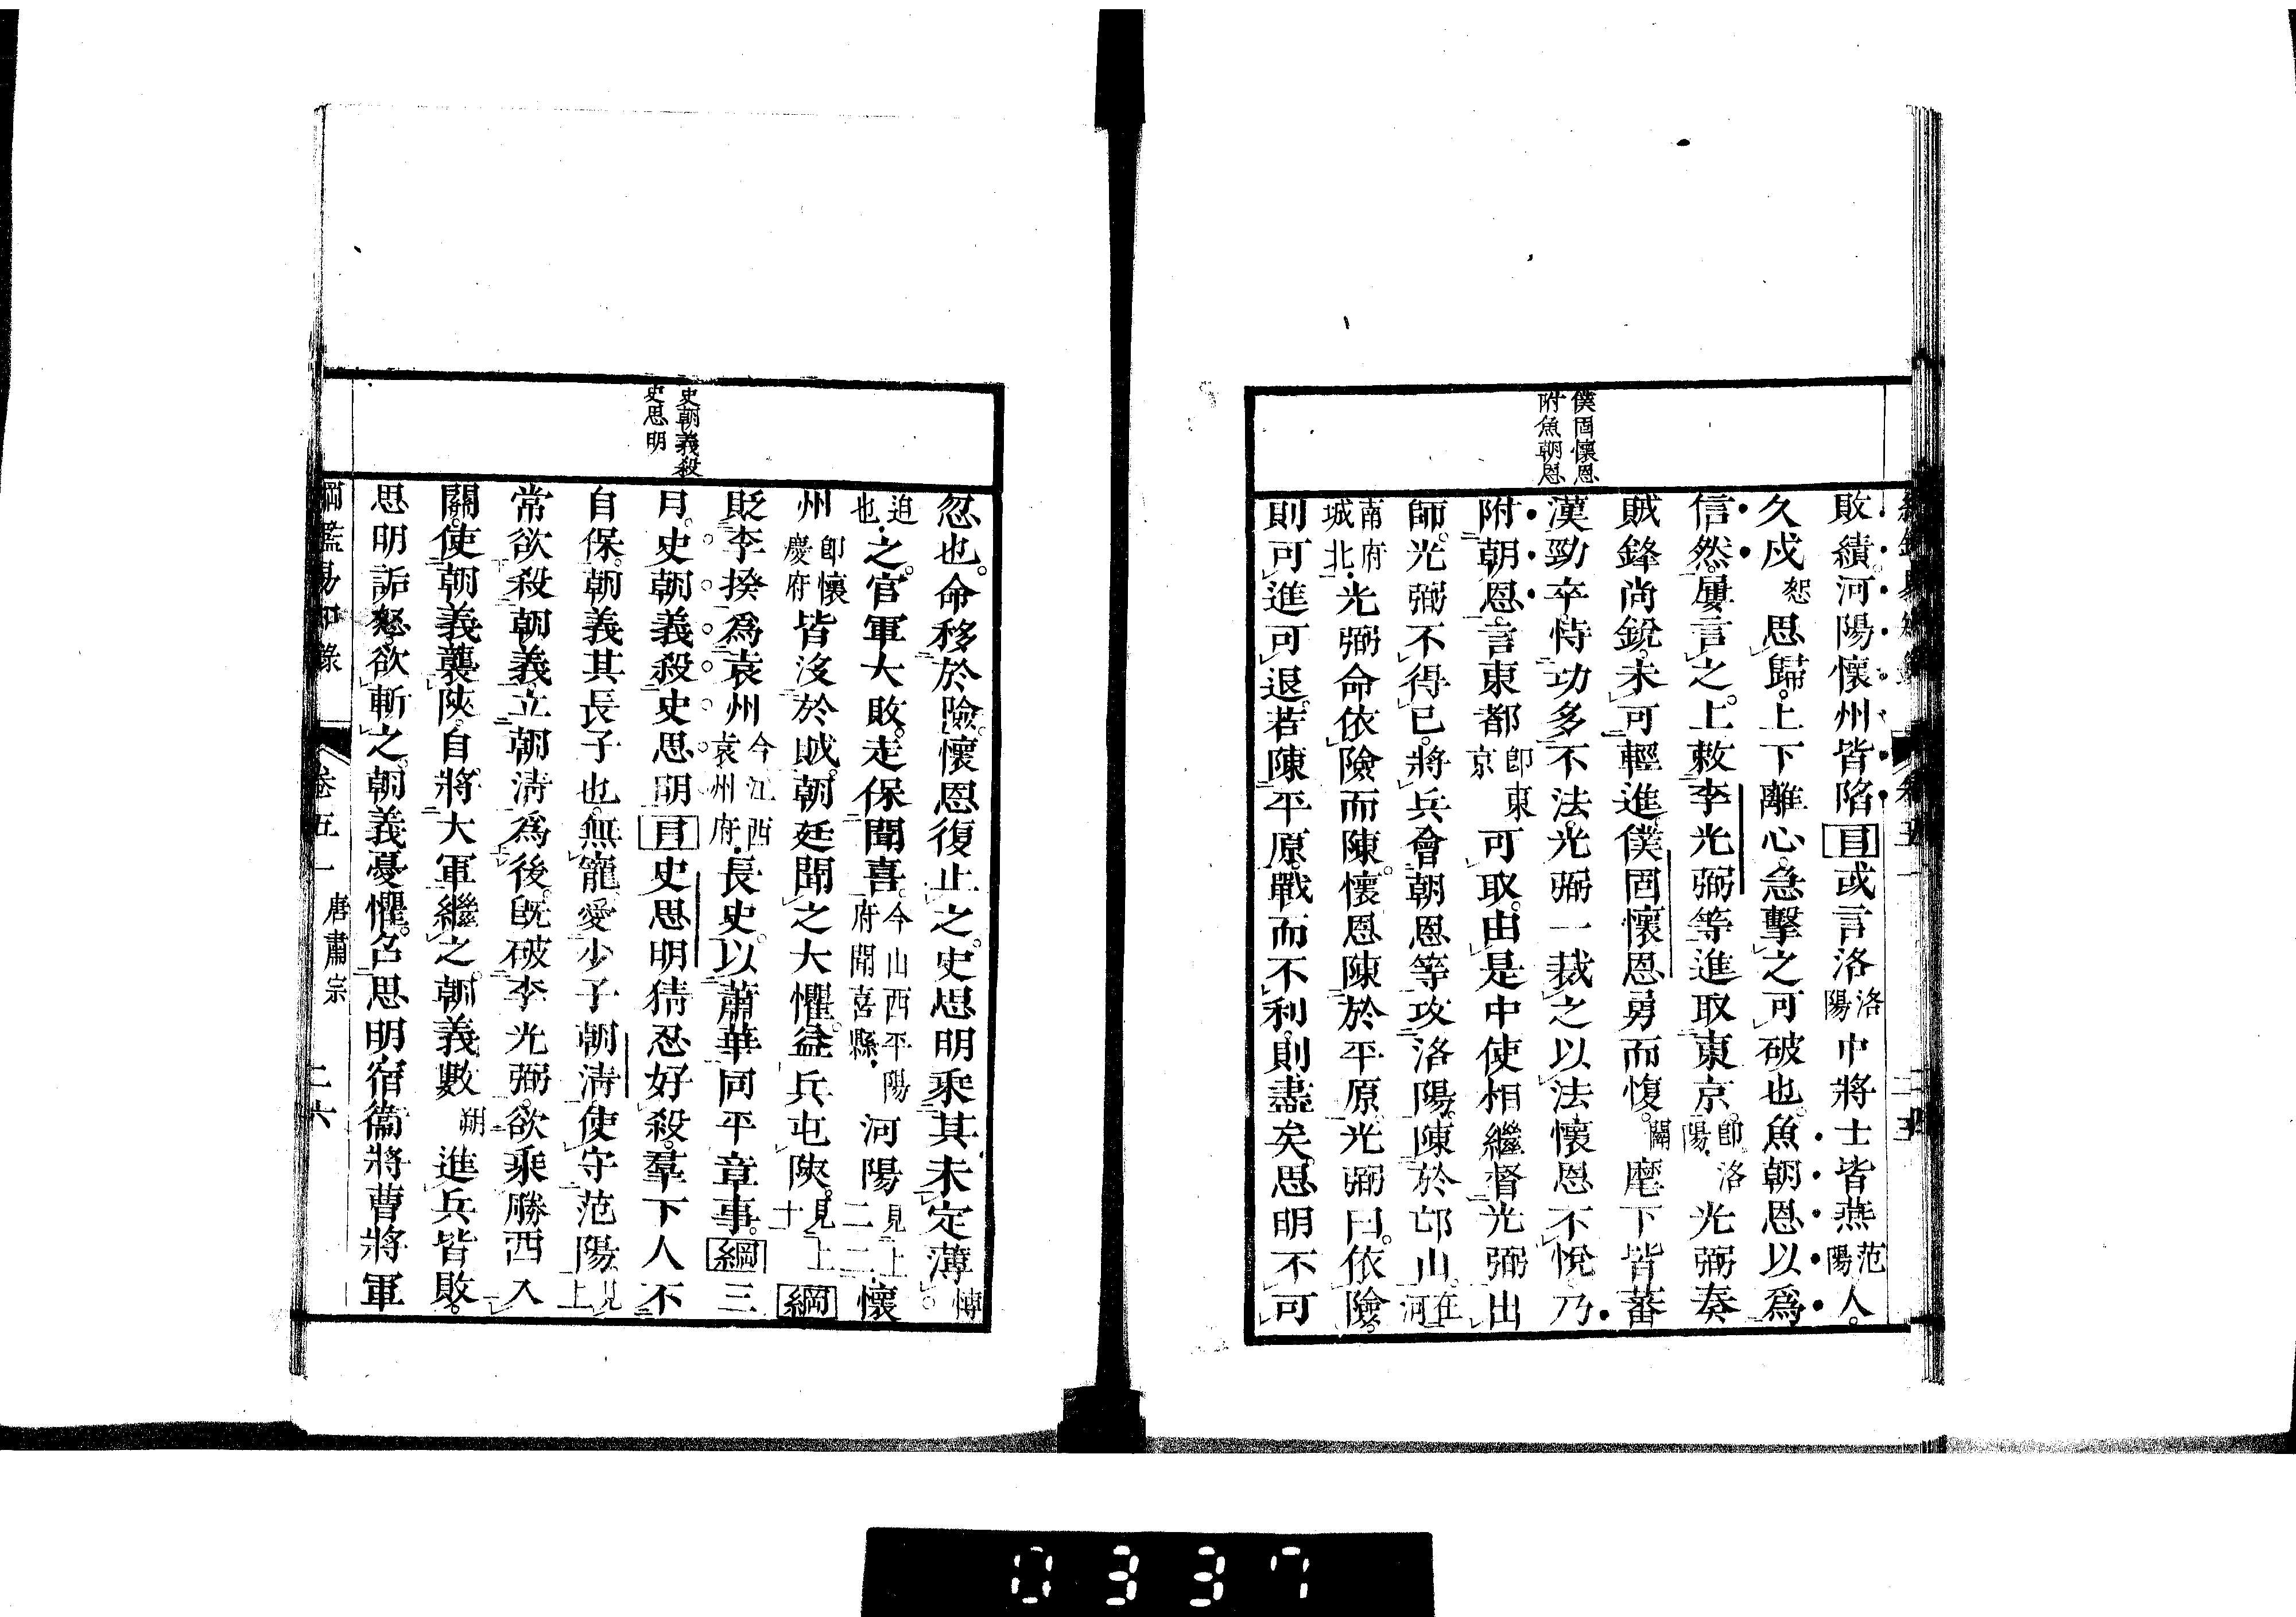 僕固懷恩
附魚朝恩
敗績河陽懷州皆陷目或言洛洛陽中將士皆燕范陽人。
久戍恕思歸。上下離心。急擊之可破也。魚朝恩以爲
信然。屢言之。上敕李光弼等進取東京。卽洛陽光弼奏
賊鋒尚銳。未可輕進。僕固懷恩勇而愎。關麾下皆蕃
漢勁卒。恃功多不法。光弼一裁之以法。懷恩不悅。乃
附朝恩。言東都卽東京可取。由是中使相繼督光弼出
師。光弼不得已。將兵會朝恩等攻洛陽。陳於邙山。在河
南府城北光弼命依險而陳。懷恩陳於平原。光弼曰。依險。
則可進可退。若陳平原。戰而不利。則盡矣。思明不可
史朝義殺
史思明
忽也。命移於險。懷恩復止之。史思明乘其未定薄。愽
迫也之。官軍大敗。走保聞喜。今山西平陽府聞喜縣河陽見上二二懷
州卽懷慶府皆沒於賊。朝廷聞之大懼。益兵屯陝。見上十綱
貶李揆爲袁州今江西袁州府長史。以蕭華同平章事。綱三
月。史朝義殺史思明目史思明猜忍好殺。羣下人不
自保。朝義其長子也。無寵。愛少子朝淸。使守范陽見上
常欲殺朝義。立朝淸爲後。旣破李光弼。欲乘勝西入
關。使朝義襲陝。自將大軍繼之。朝義數朔進兵皆敗。
思明詬怒。欲斬之。朝義憂懼。召思明宿衞將曹將軍
綱鑑易知錄
卷五一
唐肅宗
二六